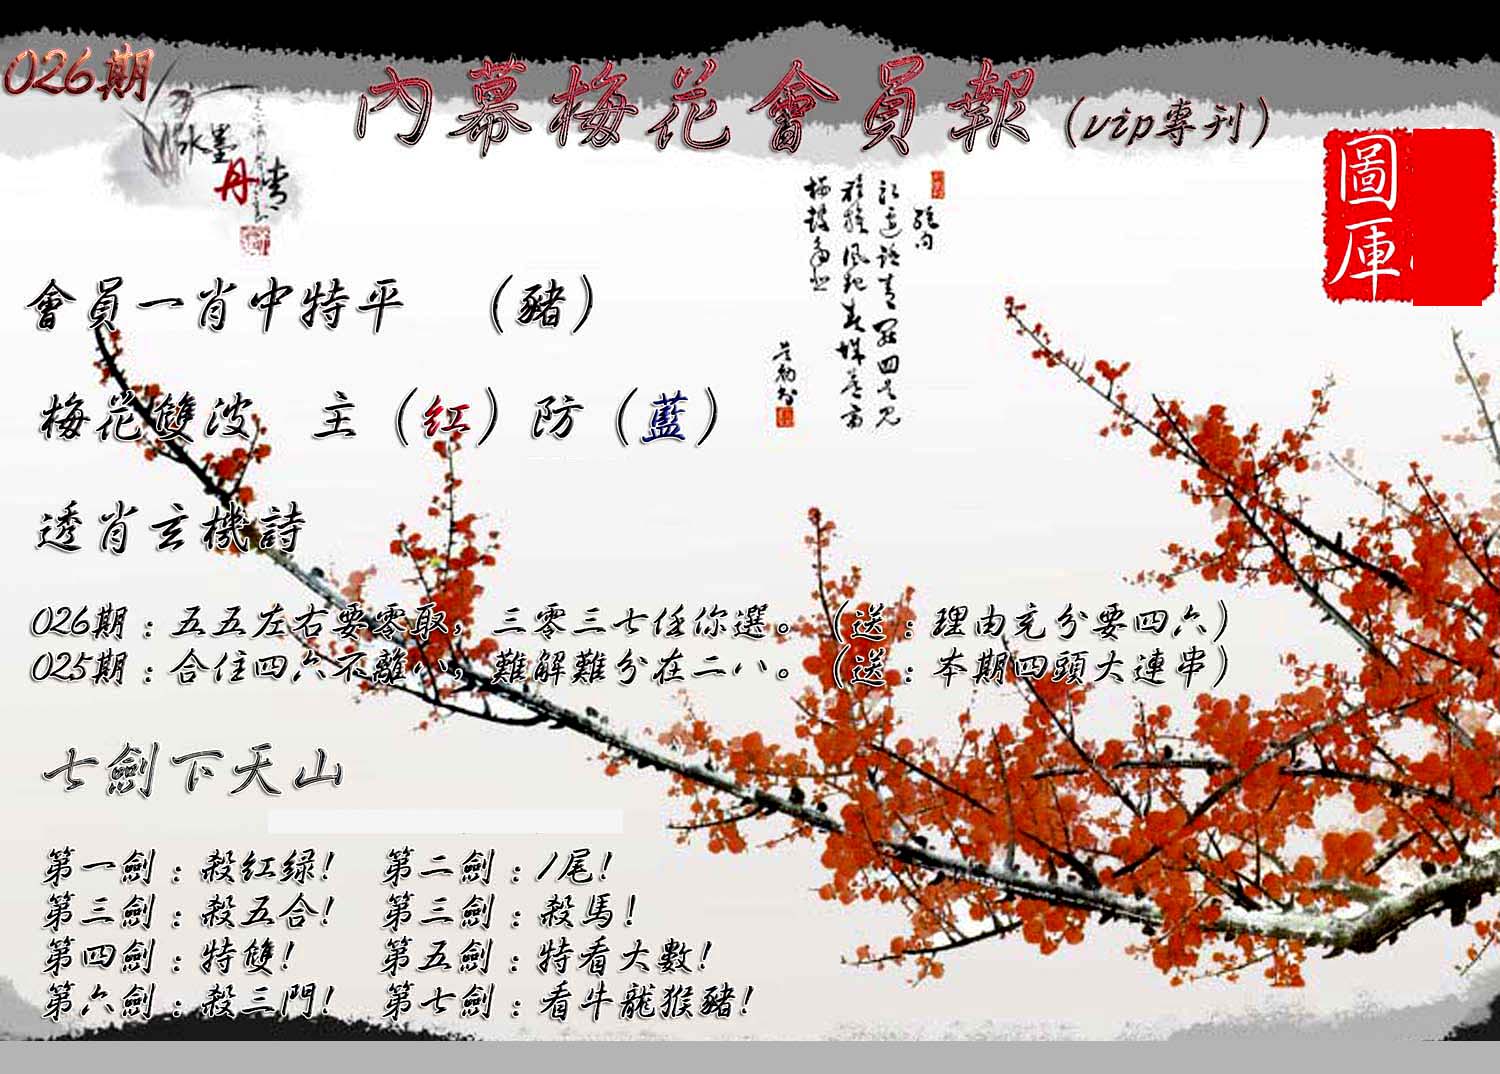 026期
內幕梅花會員報（vip專刊）
水墨
丹青
圖庫
會員一肖中特平　（豬）
梅花雙波　主（紅）防（藍）
透肖玄機詩
026期：五五左右要零取，三零三七任你選。（送：理由充分要四六）
025期：合住四六不離八，難解難分在二八。（送：本期四頭大連串）
七劍下天山
第一劍：殺紅緑！　第二劍：1尾！
第三劍：殺五合！　第三劍：殺馬！
第四劍：特雙！　第五劍：特看大數！
第六劍：殺三門！　第七劍：看牛龍猴豬！